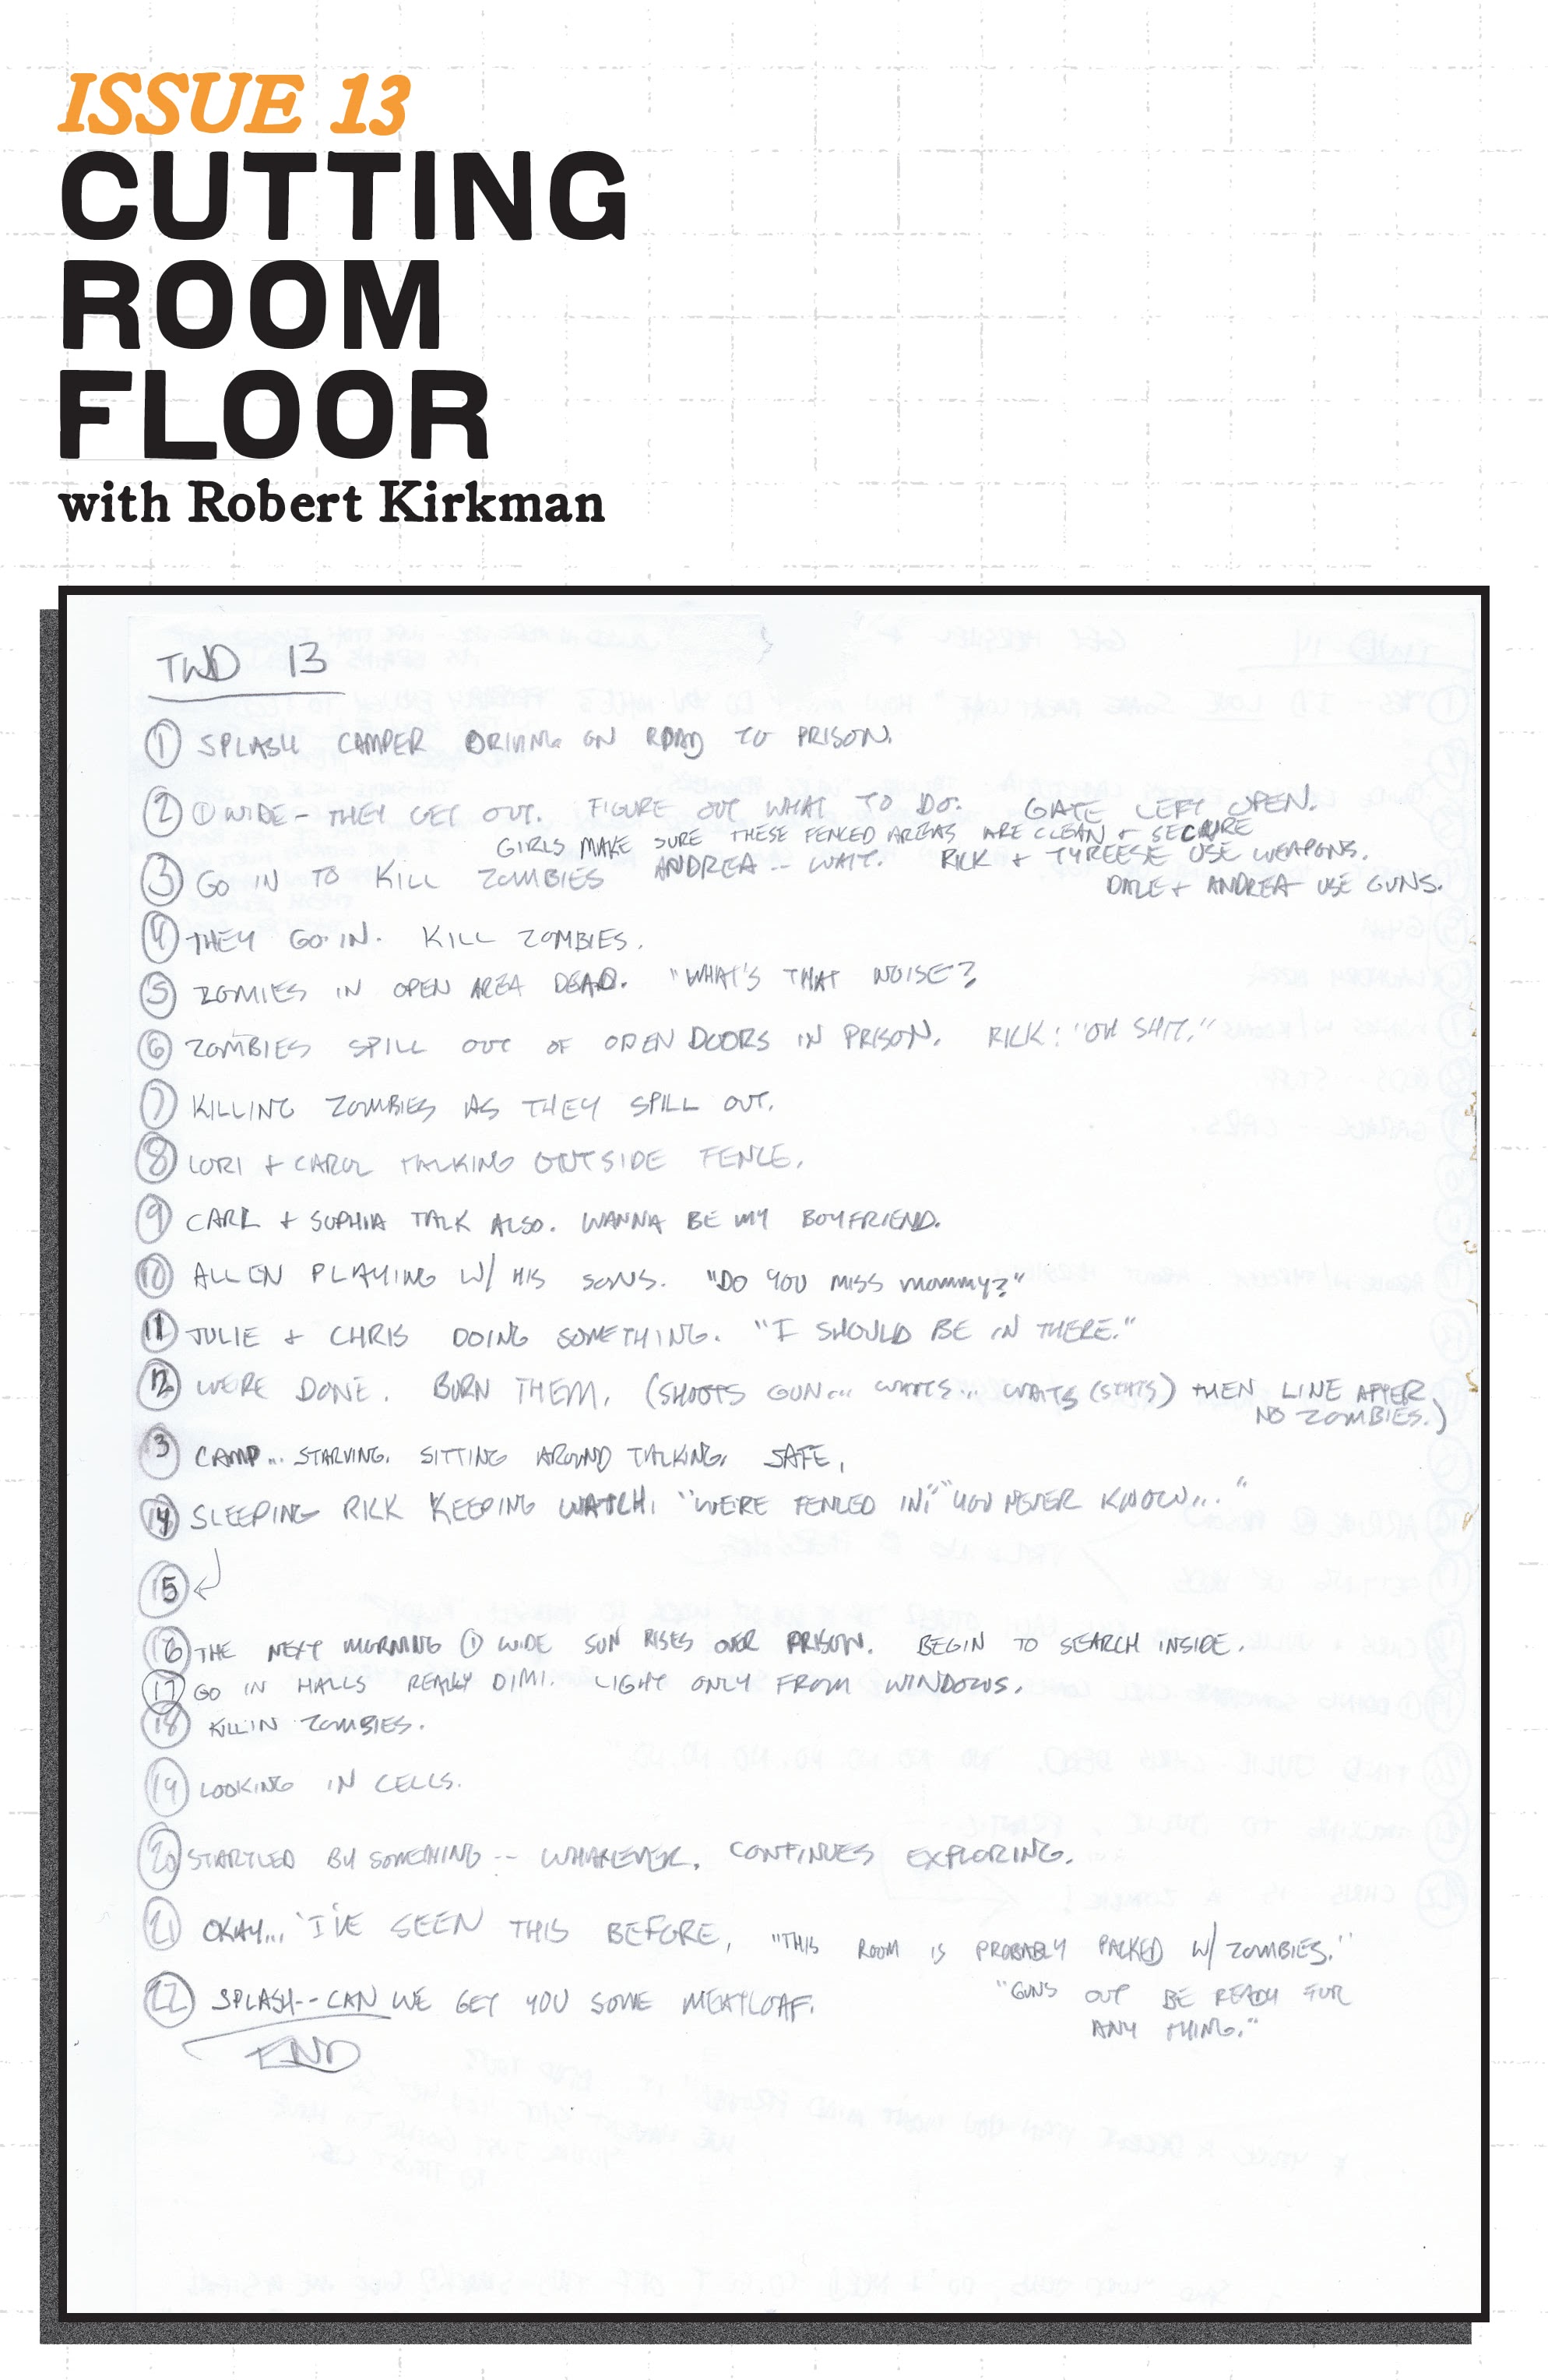 ISSUE 13
CUTTING
ROOM
FLOOR
with Robert Kirkman
TWD 13
① SPLASH CAMPER DRIVING ON ROAD TO PRISON.
② ① WIDE - THEY GET OUT. FIGURE OUT WHAT TO DO. GATE LEFT OPEN.
GIRLS MAKE SURE THESE FENCED AREAS ARE CLEAN + SECURE
③ GO IN TO KILL ZOMBIES ANDREA -- WAIT. RICK + TYREESE USE WEAPONS.
DALE + ANDREA USE GUNS.
④ THEY GO IN. KILL ZOMBIES.
⑤ ZOMIES IN OPEN AREA DEAD. "WHAT'S THAT NOISE?
⑥ ZOMBIES SPILL OUT OF OPEN DOORS IN PRISON. RICK: "OH SHIT."
⑦ KILLING ZOMBIES AS THEY SPILL OUT.
⑧ LORI + CAROL TALKING OUTSIDE FENCE.
⑨ CARL + SOPHIA TALK ALSO. WANNA BE MY BOYFRIEND.
⑩ ALLEN PLAYING W/ HIS SONS. "DO YOU MISS mommy?"
⑪ JULIE + CHRIS DOING SOMETHING. "I SHOULD BE IN THERE."
⑫ WE'RE DONE. BURN THEM. (SHOOTS GUN... WAITS... WAITS (STATS) THEN LINE AFTER
NO ZOMBIES.)
③ CAMP... STARVING. SITTING AROUND TALKING. SAFE.
⑭ SLEEPING RICK KEEPING WATCH. "WE'RE FENCED IN." "YOU NEVER KNOW..."
⑮
⑯ THE NEXT MORNING ① WIDE SUN RISES OVER PRISON. BEGIN TO SEARCH INSIDE.
⑰ GO IN HALLS REALLY DIM. LIGHT ONLY FROM WINDOWS.
⑱ KILLIN ZOMBIES.
⑲ LOOKING IN CELLS.
⑳ STARTLED BY SOMETHING -- WHATEVER. CONTINUES EXPLORING.
㉑ OKAY... I'VE SEEN THIS BEFORE. "THIS ROOM IS PROBABLY PACKED W/ ZOMBIES."
㉒ SPLASH -- CAN WE GET YOU SOME MEATLOAF.
"GUNS OUT BE READY FOR
ANY THING."
END